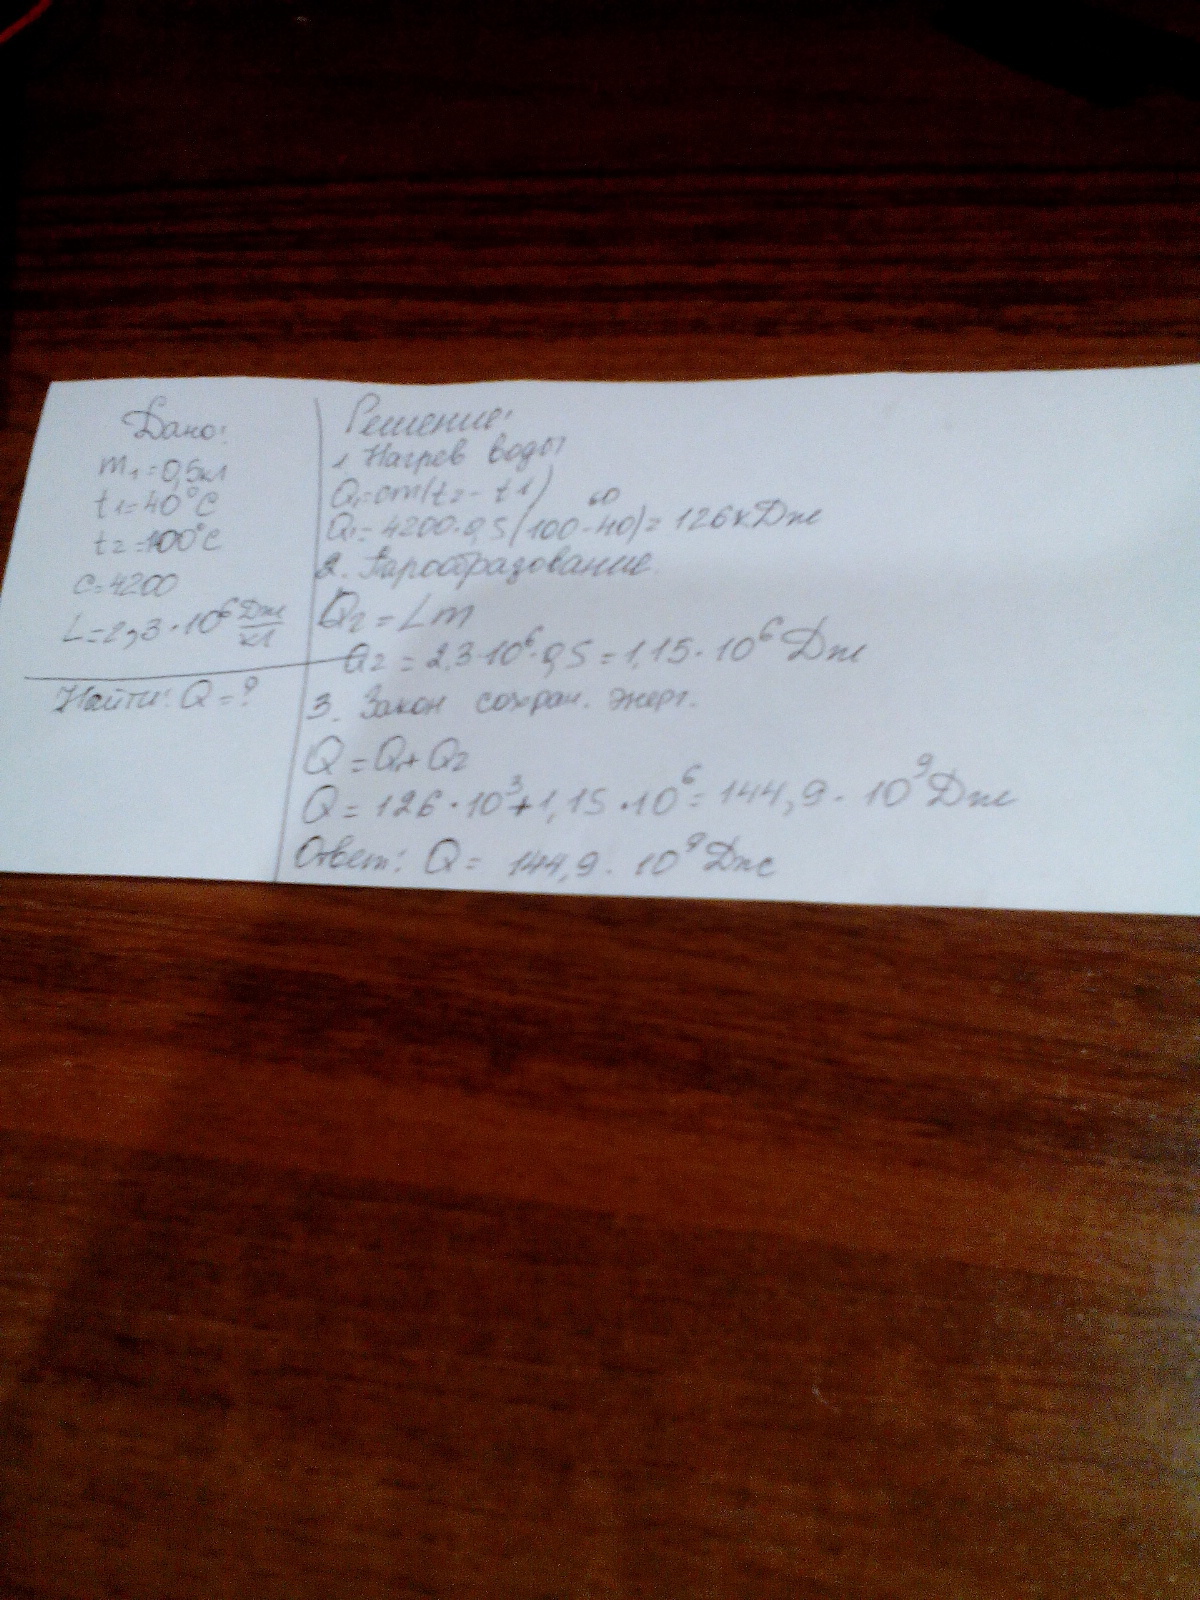 Дано:
m₁=0,5кг
t₁=40°C
t₂=100°C
c=4200
L=2,3·10⁶ Дж/кг
Найти: Q=?
Решение:
1 Нагрев воды
Q₁=cm(t₂-t1)
60
Q₁=4200·0,5(100-40)=126кДж
2. Парообразование.
Q₂=Lm
Q₂=2,3·10⁶·0,5=1,15·10⁶Дж
3. Закон сохран. энерг.
Q=Q₁+Q₂
Q=126·10³+1,15·10⁶=144,9·10⁹Дж
Ответ: Q=144,9·10⁹Дж